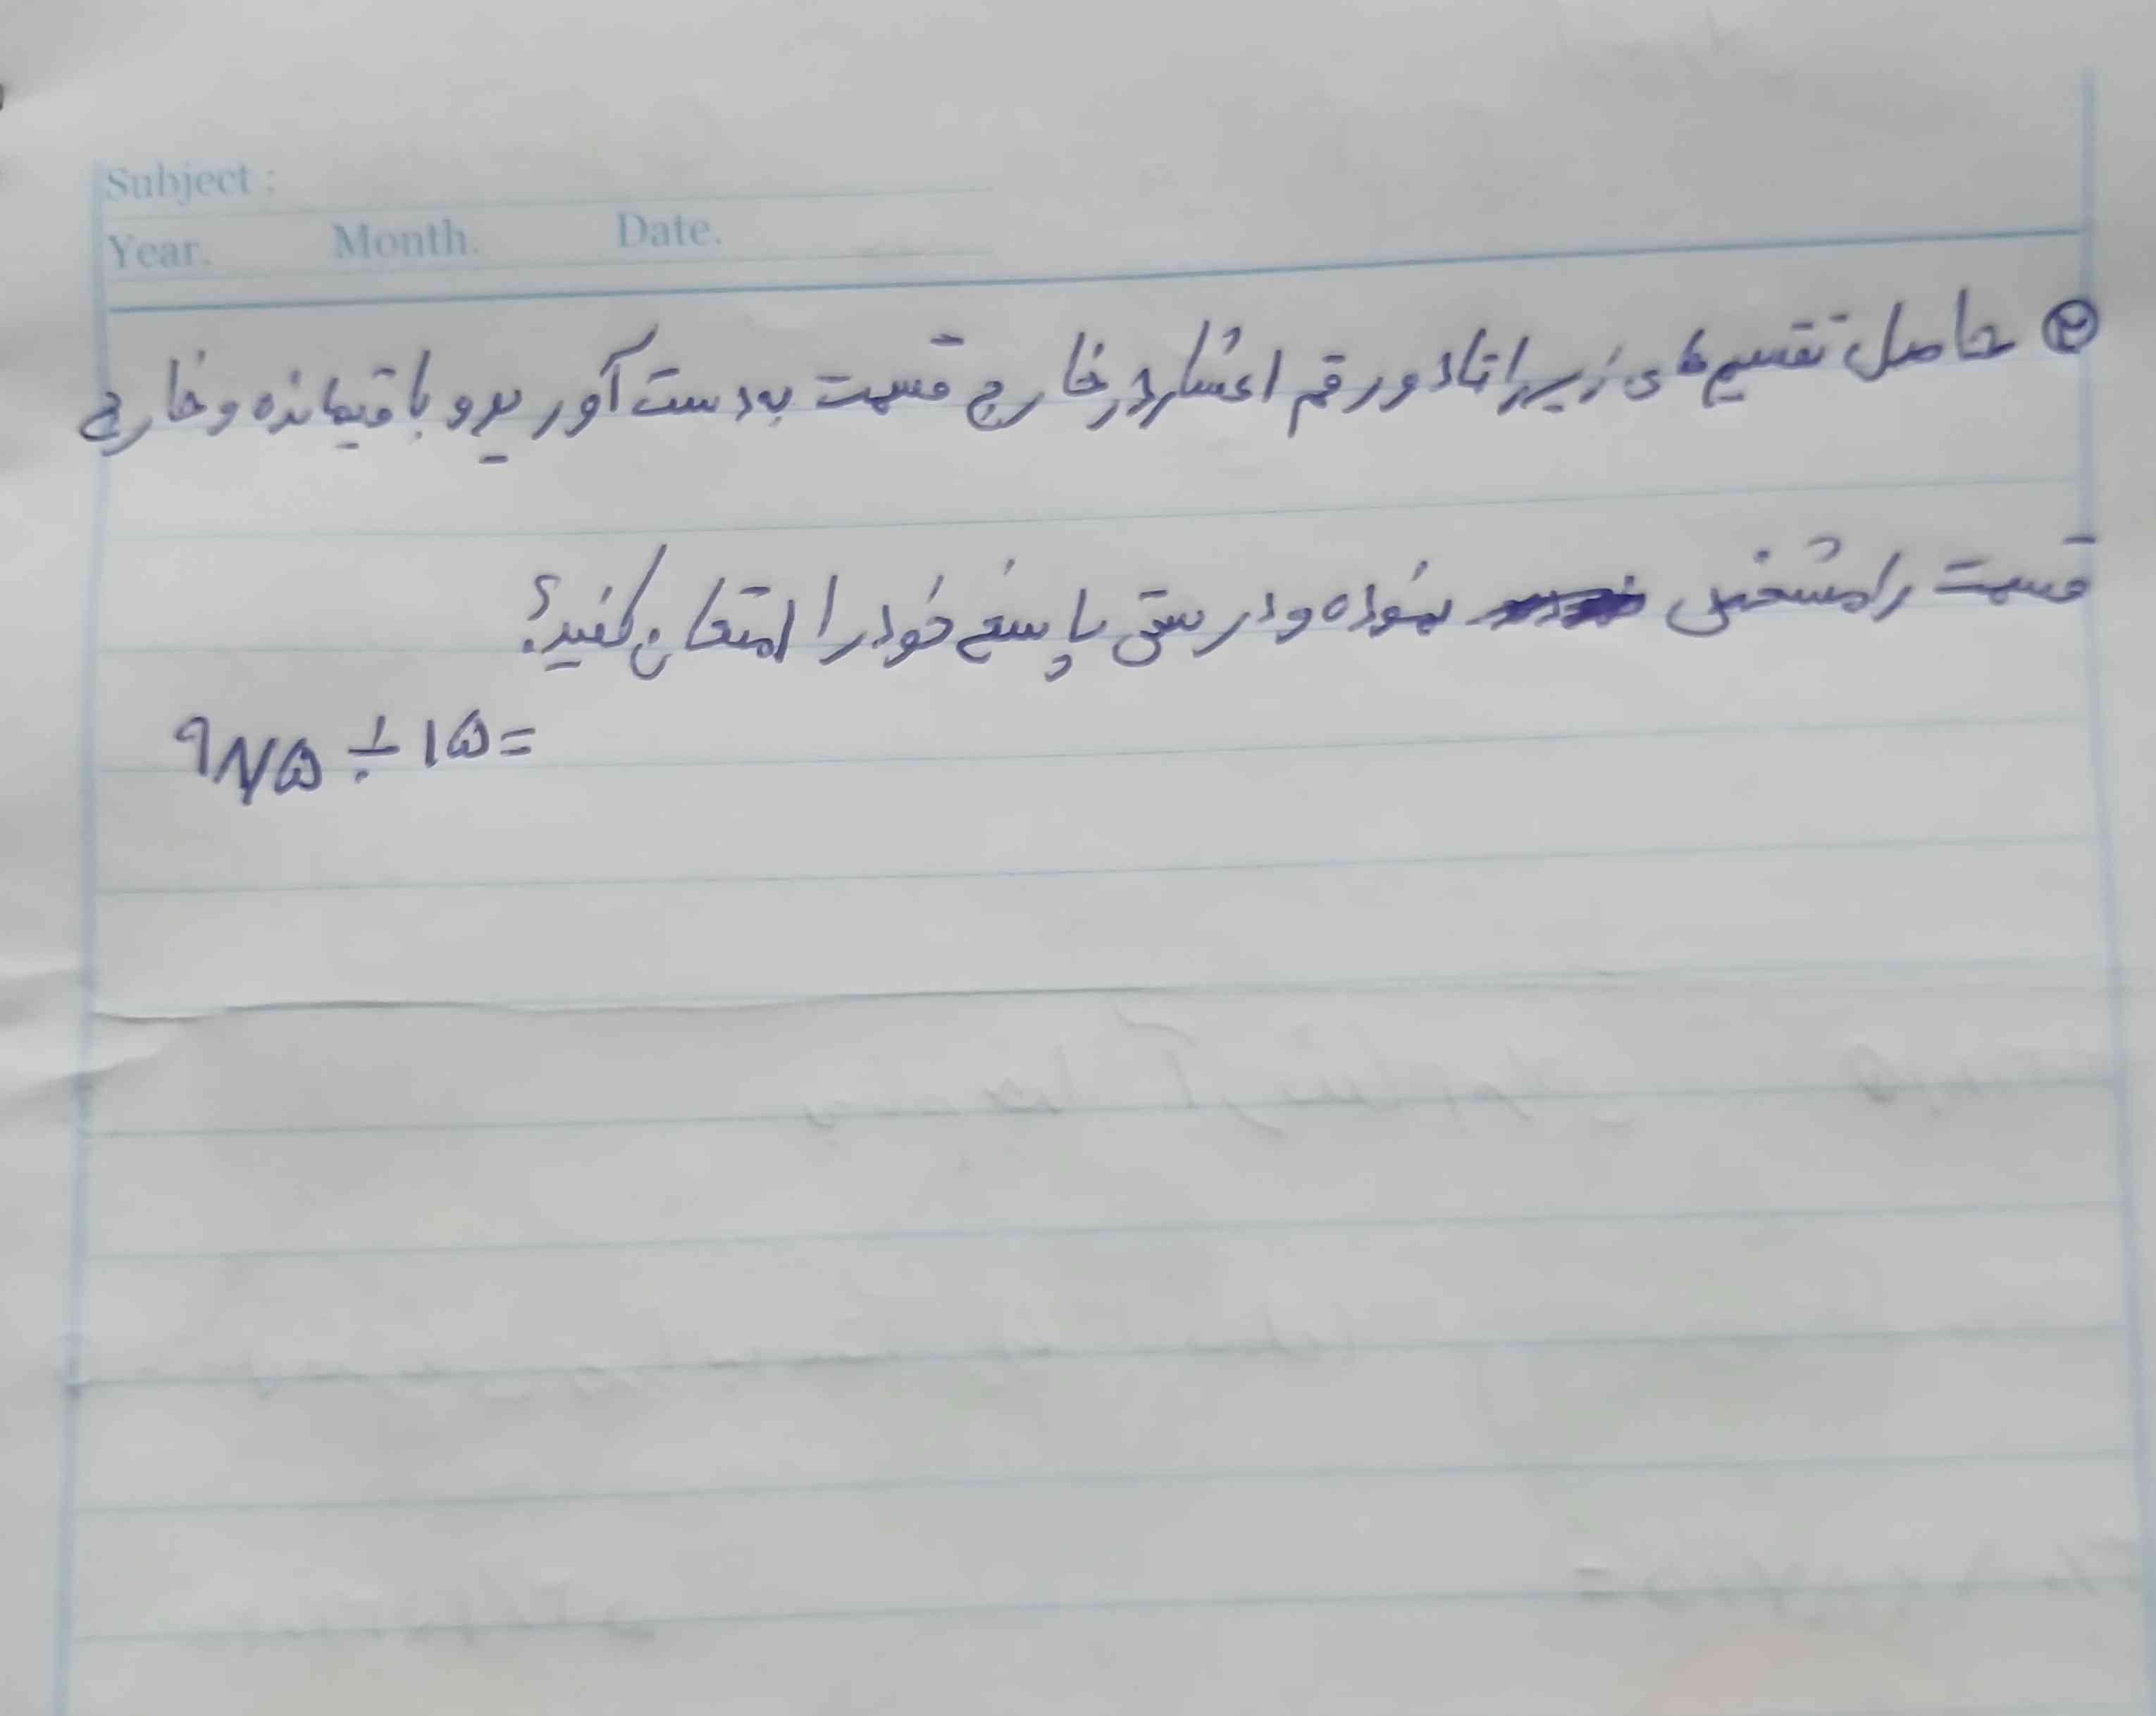 Subject :
Year. Month. Date.
② حاصل تقسیم های زیر را تا دو رقم اعشار در خارج قسمت به دست آورید و باقیمانده و خارج
قسمت را مشخص نموده و درستی پاسخ خود را امتحان کنید؟
۹۷۵ ÷ ۱۵=